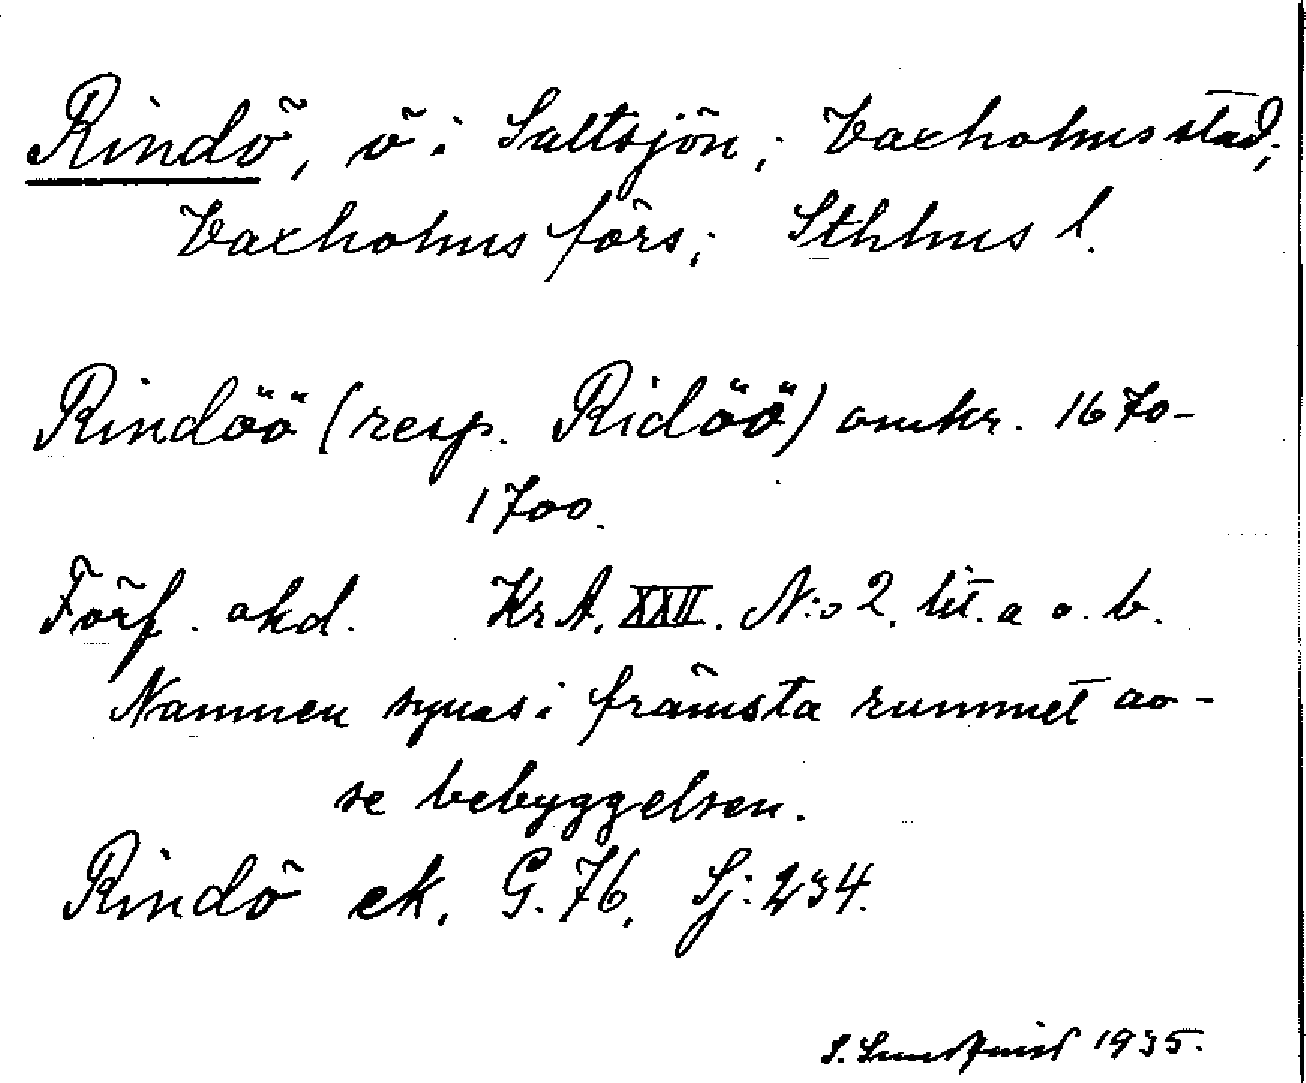 Rindö, ö i Saltsjön; Vaxholms stad;
Vaxholms förs; Sthlms l.
Rindöö (resp. Ridöö) omkr. 1670-
1700.
Förf. okd. KrA. XXII. N:o 2. lit. a o. b.
Namnen synas i främsta rummet av-
se bebyggelsen.
Rindö ek. G. 76. Sj: 234.
S. Lundquist 1935.